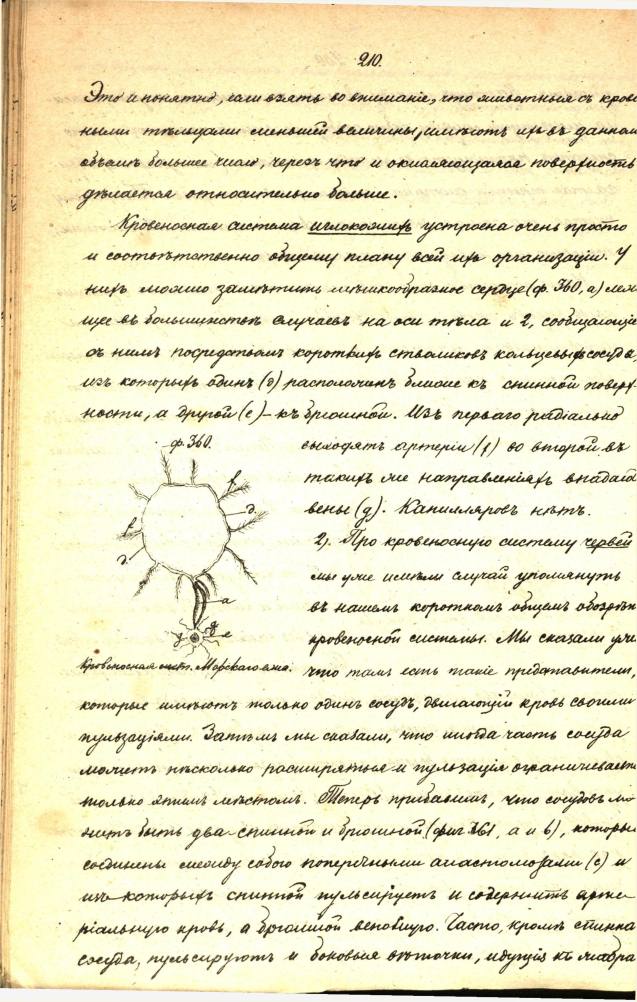 210.
Это и понятно, если взять во вниманіе, что животныя съ кровя
ными тѣльцами меньшей величины, имѣютъ ихъ въ данномъ
объемѣ большее число, черезъ что и окисляющаяся поверхность
дѣлается относительно больше.
Кровеносная система иглокожихъ устроена очень просто
и соотвѣтственно общему плану всей ихъ организаціи. У
нихъ можно замѣтить мѣшкообразное сердце (ф. 360, а) леж
щее въ большинствѣ случаевъ на оси тѣла и 2, сообщающіе
съ нимъ посредствомъ короткихъ стволиковъ кольцевыхъ сосуда,
изъ которыхъ одинъ (д) расположенъ ближе къ спинной поверх
ности, а другой (е) – къ брюшной. Изъ перваго радіально
выходятъ артеріи (f) во второй въ
такихъ же направленіяхъ впадаю
вены (g). Капилляровъ нѣтъ.
2). Про кровеносную систему червей
мы уже имѣли случай упомянуть
въ нашемъ короткомъ общемъ обозрѣн
кровеносной системы. Мы сказали уже
что тамъ есть такіе представители,
ф. 360.
f
д.
f
д.
а
g
g
е
Кровеносная сист. Морскаго ежа.
которые имѣютъ только одинъ сосудъ, двигающій кровь своими
пульзаціями. Затѣмъ мы сказали, что иногда часть сосуда
можетъ нѣсколько расширяться и пульзація ограничивается
только этимъ мѣстомъ. Теперь прибавимъ, что сосудовъ мо
жетъ быть два – спинной и брюшной (фиг. 361, а и b), которые
соединены между собою поперечными анастомозами (с) и
изъ которыхъ спинной пульсируетъ и содержитъ арте
ріальную кровь, а брюшной венозную. Часто, кромѣ спинна
сосуда, пульсируютъ и боковыя вѣточки, идущія къ жабра